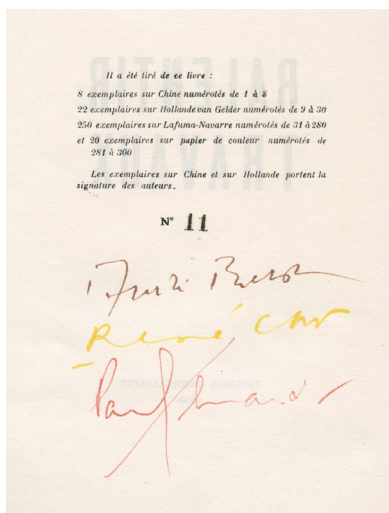 Il a été tiré de ce livre :
8 exemplaires sur Chine numérotés de 1 à 8
22 exemplaires sur Hollande van Gelder numérotés de 9 à 30
250 exemplaires sur Lafuma-Navarre numérotés de 31 à 280
et 20 exemplaires sur papier de couleur numérotés de
281 à 300
Les exemplaires sur Chine et sur Hollande portent la
signature des auteurs.
N° 11
André Breton
René Char
Paul Eluard